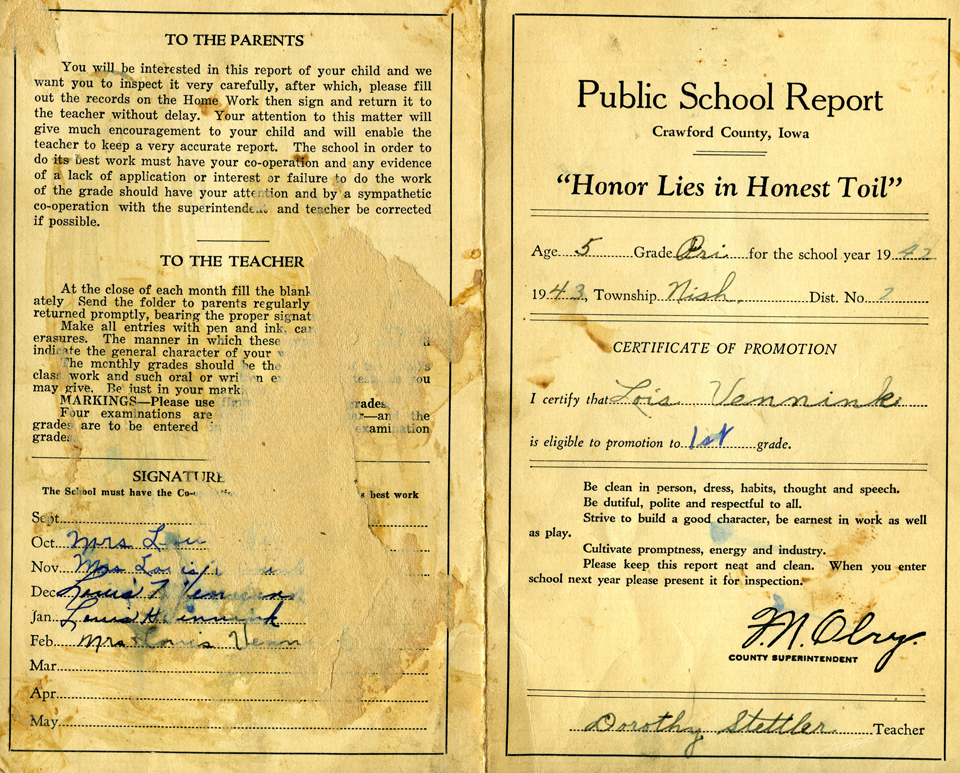 TO THE PARENTS
You will be interested in this report of your child and we
want you to inspect it very carefully, after which, please fill
out the records on the Home Work then sign and return it to
the teacher without delay. Your attention to this matter will
give much encouragement to your child and will enable the
teacher to keep a very accurate report. The school in order to
do its best work must have your co-operation and any evidence
of a lack of application or interest or failure to do the work
of the grade should have your attention and by a sympathetic
co-operation with the superintendent and teacher be corrected
if possible.
TO THE TEACHER
At the close of each month fill the blank
ately Send the folder to parents regularly
returned promptly, bearing the proper signat
Make all entries with pen and ink,
erasures. The manner in which these
indicate the general character of your
The monthly grades should be the
class work and such oral or written you
may give. Be just in your mark
MARKINGS—Please use grades
Four examinations are and the
grades are to be entered examination
grades
SIGNATURE
The School must have the Co- best work
Sept.
Oct. Mrs Lou
Nov. Mrs Louis
Dec. Louis Vennink
Jan. Louis H Vennink
Feb. Mrs Louis Venn
Mar.
Apr.
May.
Public School Report
Crawford County, Iowa
"Honor Lies in Honest Toil"
Age 5 Grade Pri for the school year 1942
1943, Township Nish. Dist. No. 2
CERTIFICATE OF PROMOTION
I certify that Lois Vennink
is eligible to promotion to 1st grade.
Be clean in person, dress, habits, thought and speech.
Be dutiful, polite and respectful to all.
Strive to build a good character, be earnest in work as well
as play.
Cultivate promptness, energy and industry.
Please keep this report neat and clean. When you enter
school next year please present it for inspection.
F. N. Olry.
COUNTY SUPERINTENDENT
Dorothy Stettler Teacher